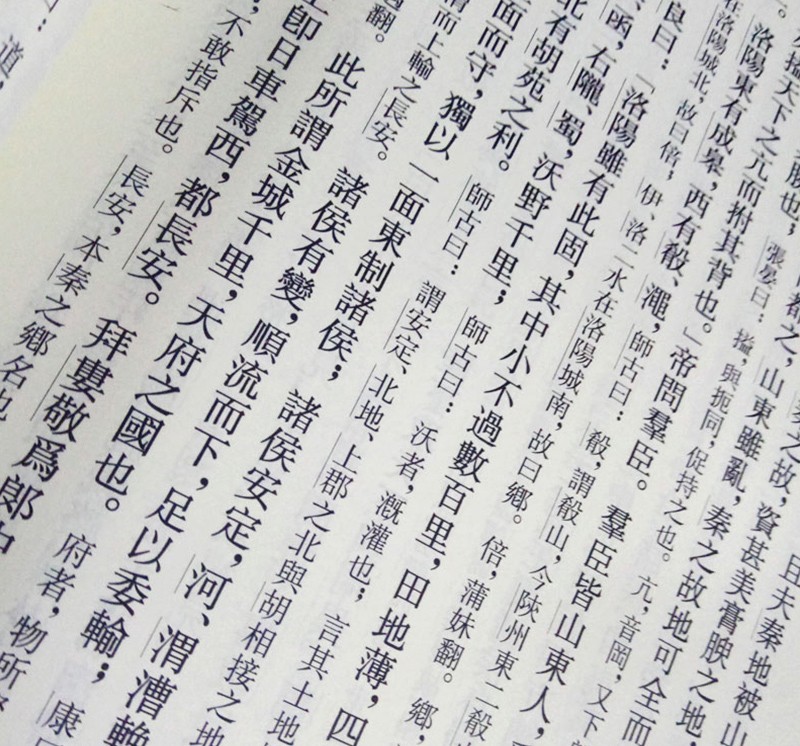 且夫秦地被山
秦之故，資甚美膏腴之地，
都之，山東雖亂，秦之故地可全而
勝也；張晏曰：搤，與扼同，促持之也。亢，音岡，又下
搤天下之亢而拊其背也。」帝問羣臣。羣臣皆山東人，
洛陽東有成皋，西有殽、澠，師古曰：殽，謂殽山，今陝州東二殽
在洛陽城北，故曰倍；伊、洛二水在洛陽城南，故曰鄉。倍，蒲妹翻。鄉，
良曰：「洛陽雖有此固，其中小不過數百里，田地薄，四
函，右隴、蜀，沃野千里；師古曰：沃者，溉灌也；言其土地
北有胡苑之利。師古曰：謂安定、北地、上郡之北與胡相接之地
面而守，獨以一面東制諸侯；諸侯安定，河、渭漕輓
而上輸之長安。諸侯有變，順流而下，足以委輸；康
翻。此所謂金城千里，天府之國也。府者，物所
上卽日車駕西，都長安。拜婁敬爲郎中
不敢指斥也。長安，本秦之鄉名也
道，